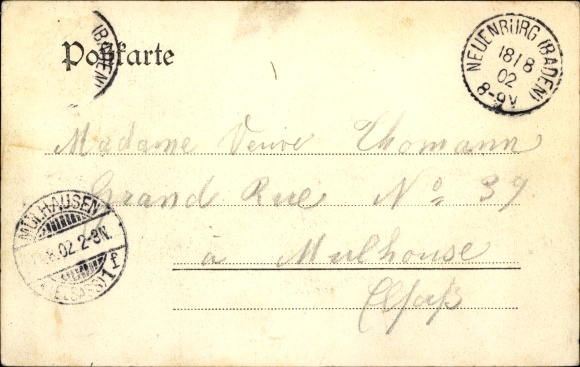 Postkarte
(BADEN)
NEUENBURG (BADEN)
18/8
02
8-9V
Madame Veuve Thomann
Grand Rue No 39
à Mulhouse
Elsaß
MÜLHAUSEN
8.02 2-3N.
(ELSASS) 1 f